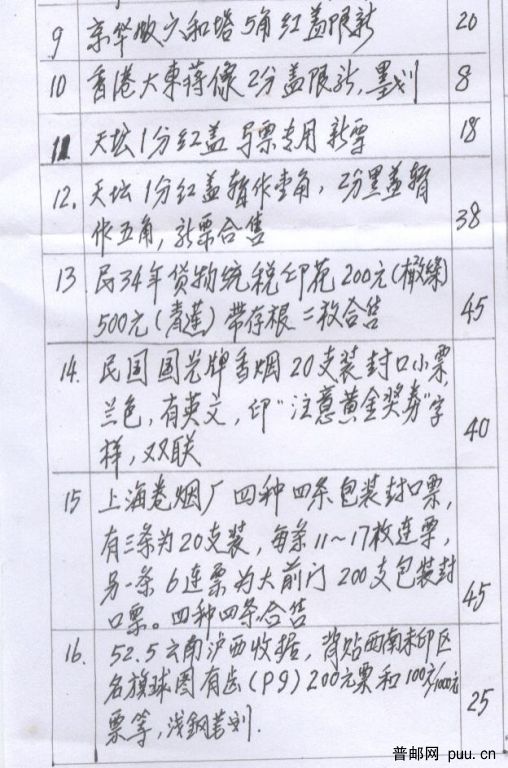 9 京华版六和塔5角红盖限新 20
10 香港大東蒋像2分盖限新,墨划 8
11 天坛1分红盖 专用新票 18
12. 天坛1分红盖暂作壹角,2分黑盖暂
作五角,新票合售 38
13 民34年货物统税印花200元(橄绿)
500元(青莲)带存根 二枚合售 45
14. 民国国光牌香烟20支装封口小票,
兰色,有英文,印"注意黄金奖券"字
样,双联 40
15 上海卷烟厂四种四条包装封口票,
有三条为20支装,每条11~17枚连票,
另一条6连票为大前门200支包装封
口票。四种四条合售 45
16. 52.5云南泸西收据,背贴西南未印区
名旗球图有齿(P9)200元票和100元/1000元
票等,浅钢笔划. 25
普邮网 puu.cn